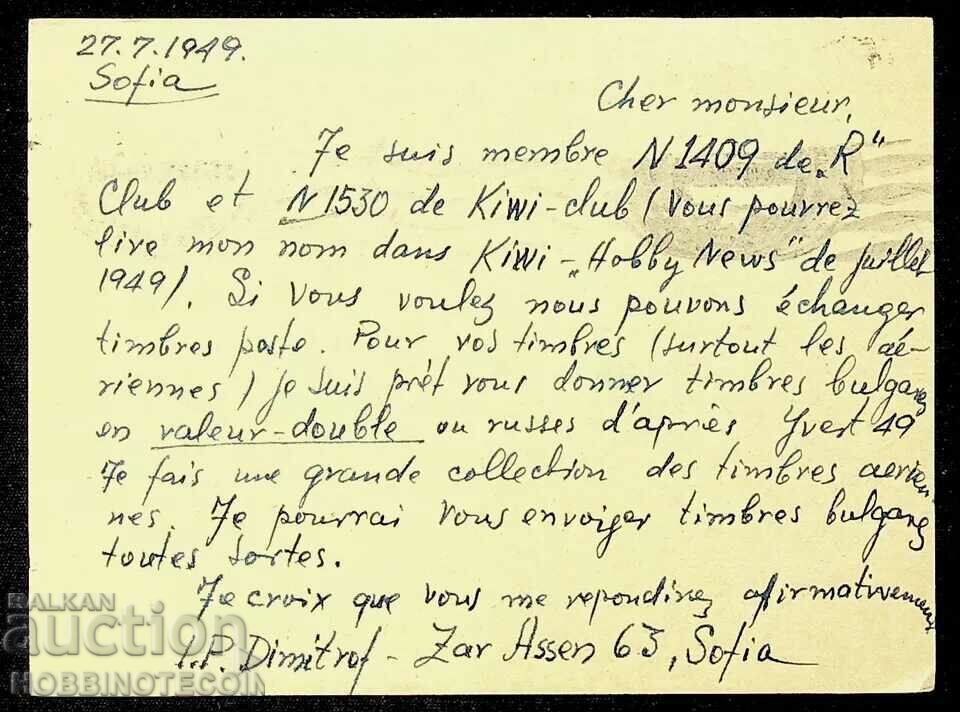 27.7.1949.
Sofia
Cher monsieur,
Je suis membre N 1409 de „R"
Club et N 1530 de Kiwi-club (Vous pourrez
lire mon nom dans Kiwi-„Hobby News" de juillet
1949). Si vous voulez nous pouvons échanger
timbres poste. Pour vos timbres (surtout les aé-
riennes) je suis prét vous donner timbres bulgares
en valeur-double ou russes d'après Yvert 49
Je fais une grande collection des timbres aerien
nes. Je pourrai vous envoiyer timbres bulgares
toutes sortes.
Je croix que vous me repondirez afirmativement
I.P. Dimitrof - Zar Assen 63, Sofia
BALKAN
auction
HOBBINOTECOIN